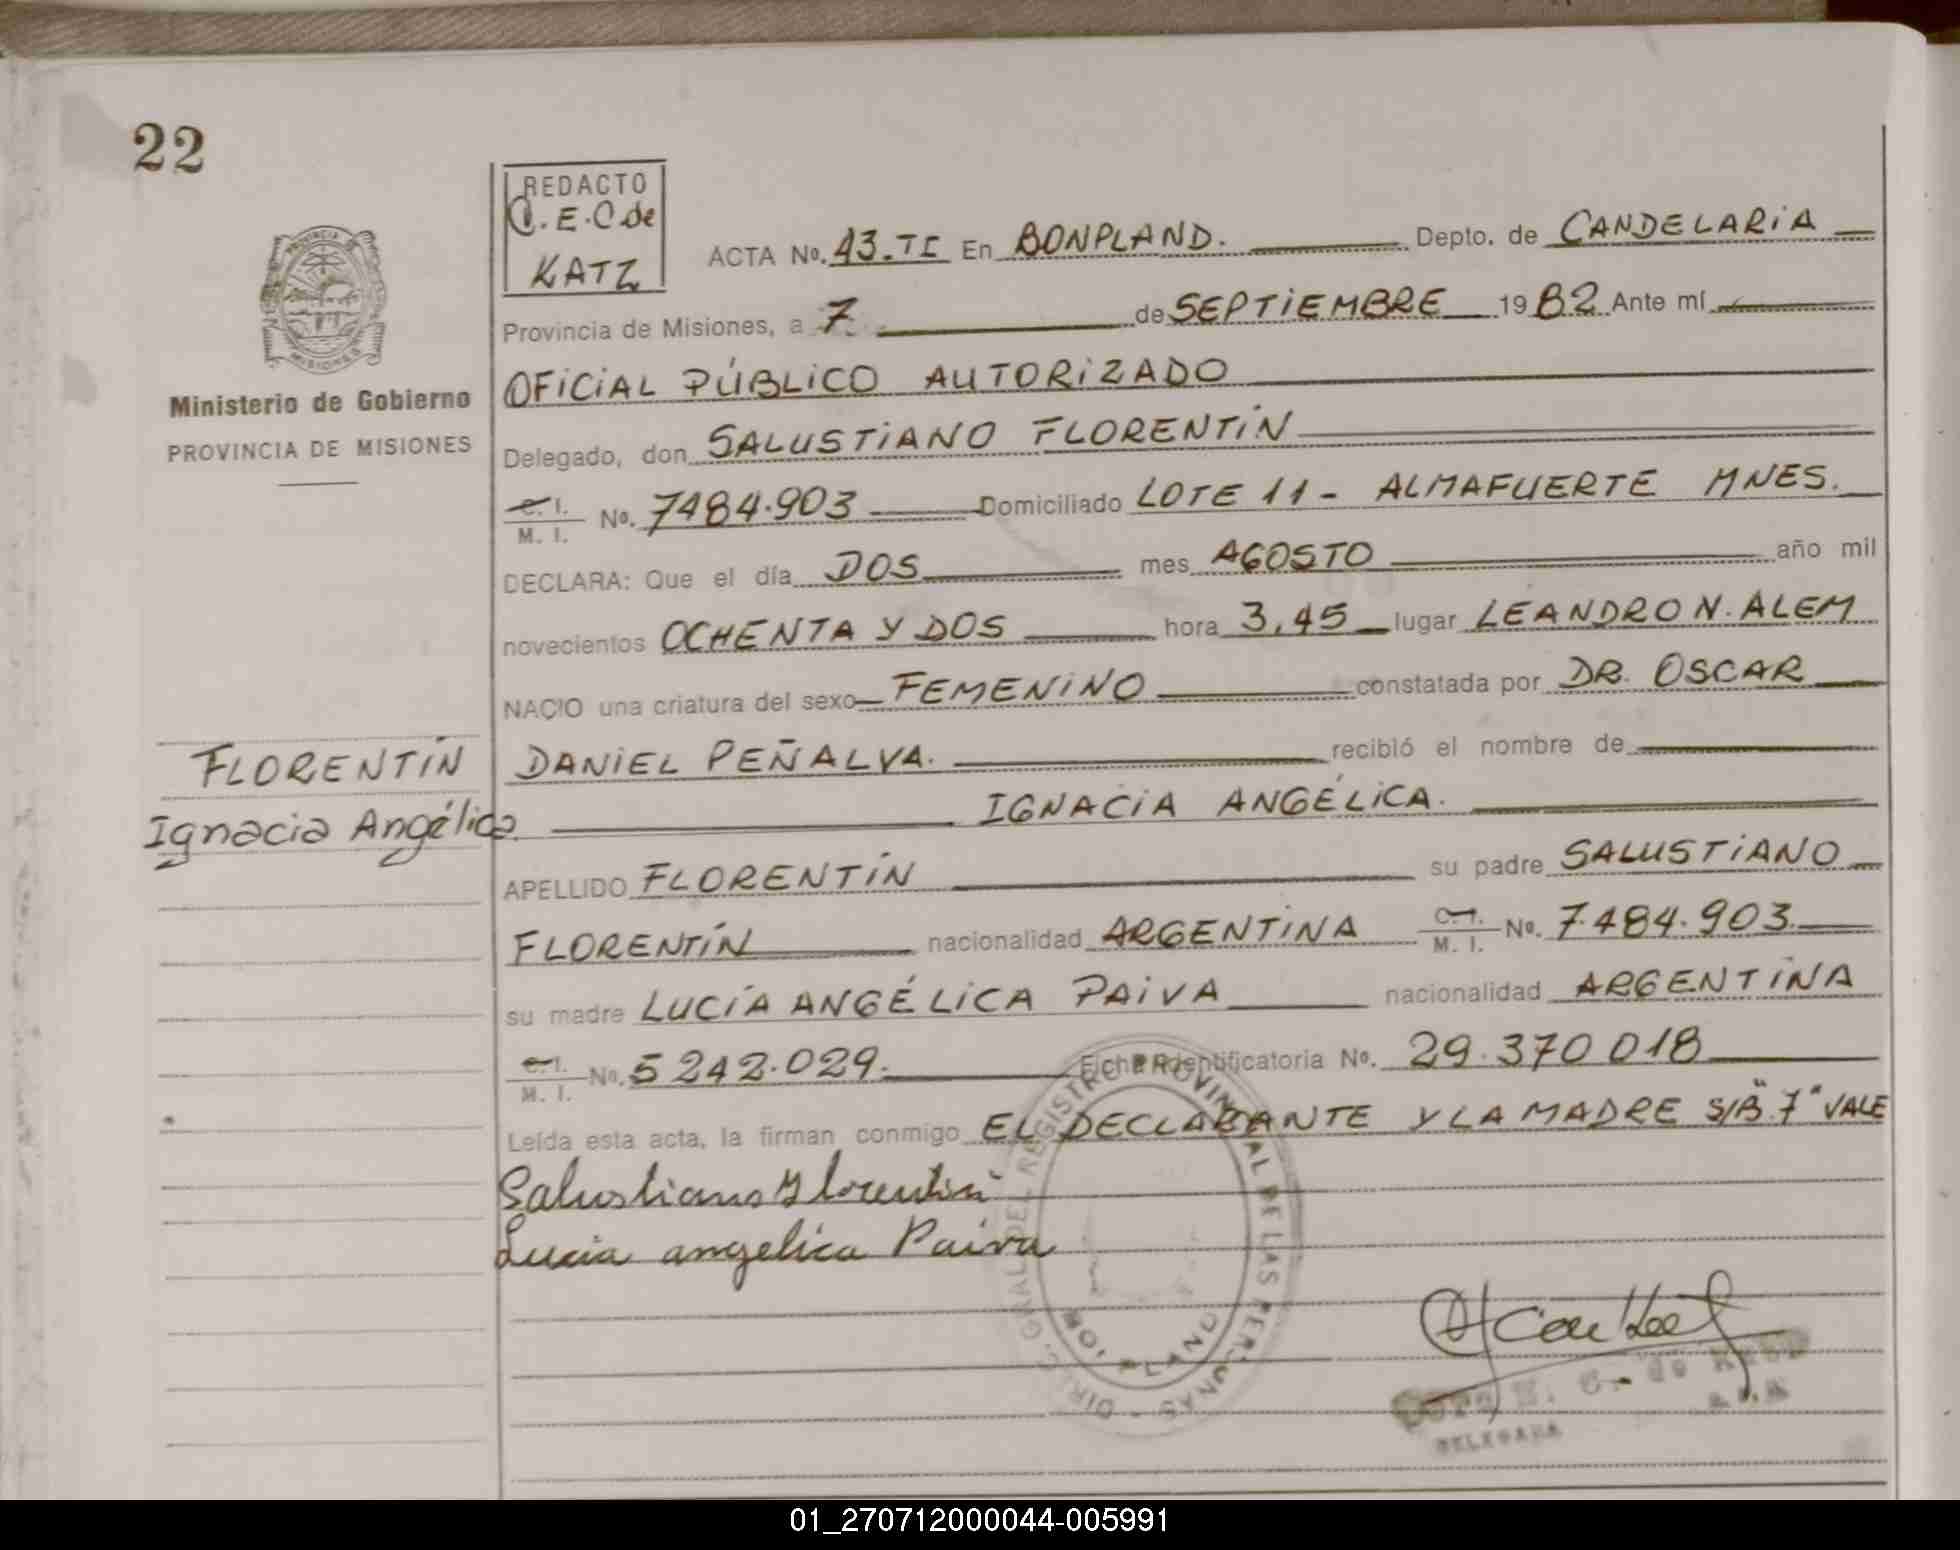 22
REDACTO
C.E.C de
KATZ
ACTA No. 43.TI En BONPLAND. Depto. de CANDELARIA
Provincia de Misiones, a 7 de SEPTIEMBRE 1982 Ante mí
Ministerio de Gobierno
PROVINCIA DE MISIONES
OFICIAL PÚBLICO AUTORIZADO
Delegado, don SALUSTIANO FLORENTÍN
C. I.
M. I. No. 7484.903 Domiciliado LOTE 11 - ALMAFUERTE MNES.
DECLARA: Que el día DOS mes AGOSTO año mil
novecientos OCHENTA Y DOS hora 3,45 lugar LEANDRO N. ALEM
NACIO una criatura del sexo FEMENINO constatada por DR. OSCAR
DANIEL PEÑALVA. recibió el nombre de
IGNACIA ANGÉLICA.
FLORENTÍN
Ignacia Angélica
APELLIDO FLORENTÍN su padre SALUSTIANO
FLORENTÍN nacionalidad ARGENTINA C. I. M. I. No. 7.484.903
su madre LUCÍA ANGÉLICA PAIVA nacionalidad ARGENTINA
C. I.
M. I. No. 5242.029. Ficha Identificatoria No. 29.370 018
Leída esta acta, la firman conmigo EL DECLARANTE Y LA MADRE S/B "7" VALE
Salustiano Florentin
Lucia angelica Paiva
DIREC. GRAL. DEL REGISTRO PROVINCIAL DE LAS PERSONAS
BONPLAND
DELEGADA
01_270712000044-005991